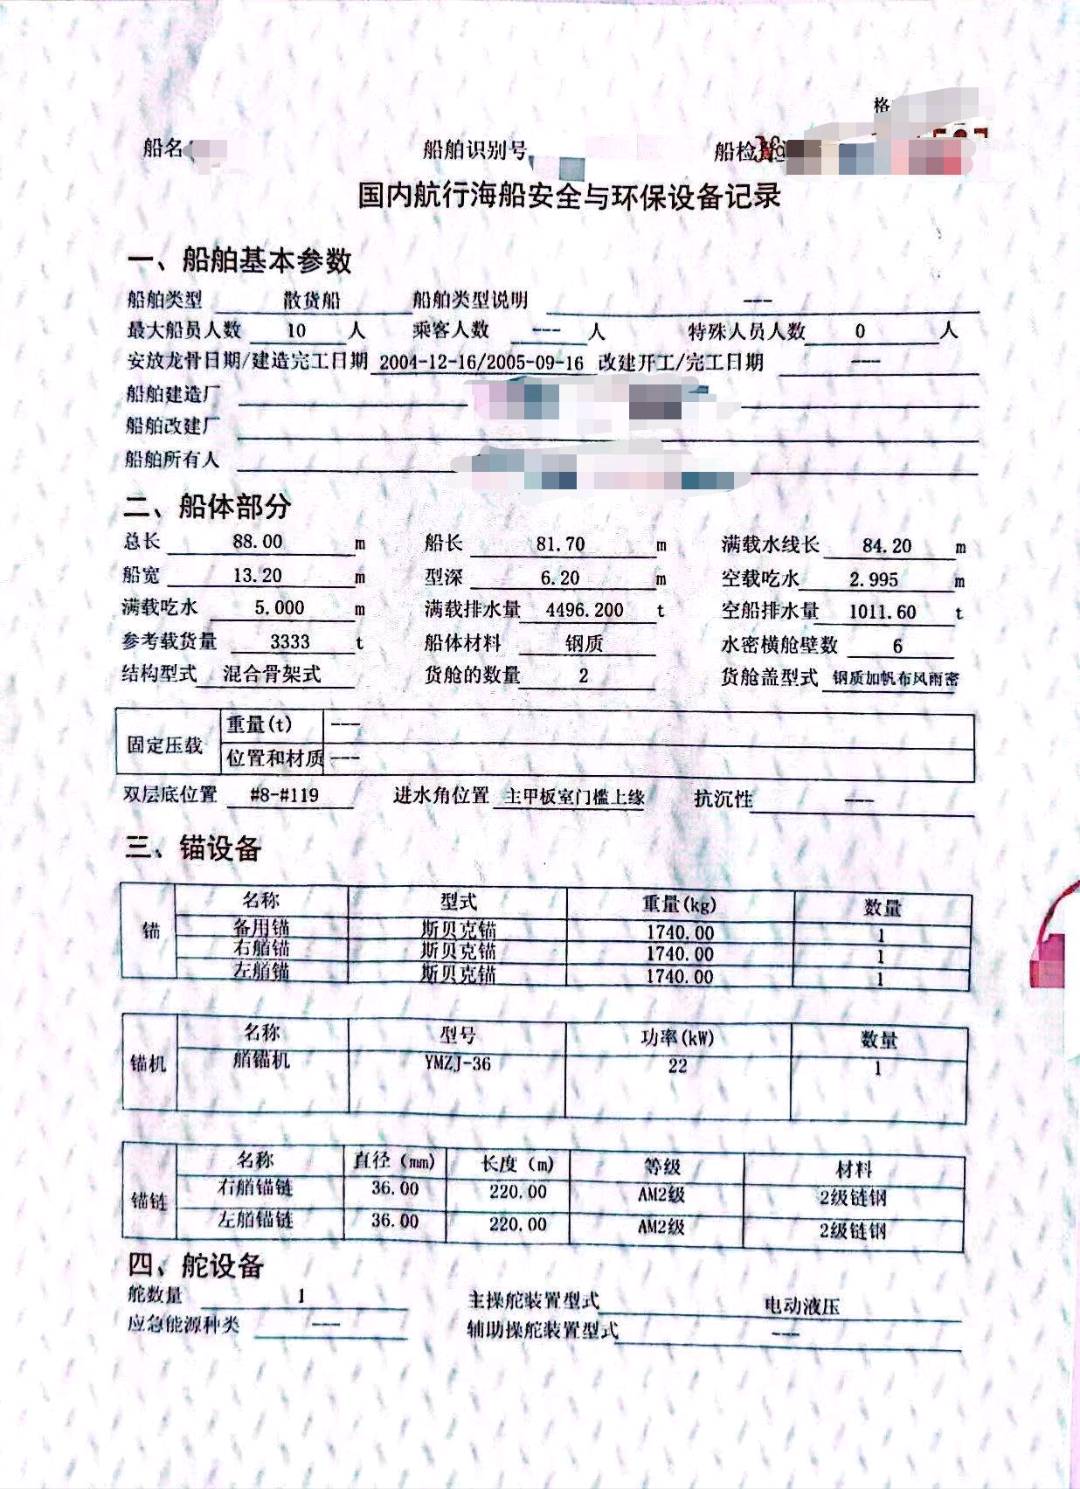 格
船名 船舶识别号 船检
国内航行海船安全与环保设备记录
一、船舶基本参数
船舶类型 散货船 船舶类型说明 ---
最大船员人数 10 人 乘客人数 --- 人 特殊人员人数 0 人
安放龙骨日期/建造完工日期 2004-12-16/2005-09-16 改建开工/完工日期 ---
船舶建造厂
船舶改建厂
船舶所有人
二、船体部分
总长 88.00 m 船长 81.70 m 满载水线长 84.20 m
船宽 13.20 m 型深 6.20 m 空载吃水 2.995 m
满载吃水 5.000 m 满载排水量 4496.200 t 空船排水量 1011.60 t
参考载货量 3333 t 船体材料 钢质 水密横舱壁数 6
结构型式 混合骨架式 货舱的数量 2 货舱盖型式 钢质加帆布风雨密
固定压载 重量(t) ---
位置和材质 ---
双层底位置 #8-#119 进水角位置 主甲板室门槛上缘 抗沉性 ---
三、锚设备
锚 名称 型式 重量(kg) 数量
备用锚 斯贝克锚 1740.00 1
右艏锚 斯贝克锚 1740.00 1
左艏锚 斯贝克锚 1740.00 1
锚机 名称 型号 功率(kW) 数量
艏锚机 YMZJ-36 22 1
锚链 名称 直径(mm) 长度(m) 等级 材料
右艏锚链 36.00 220.00 AM2级 2级链钢
左艏锚链 36.00 220.00 AM2级 2级链钢
四、舵设备
舵数量 1 主操舵装置型式 电动液压
应急能源种类 --- 辅助操舵装置型式 ---